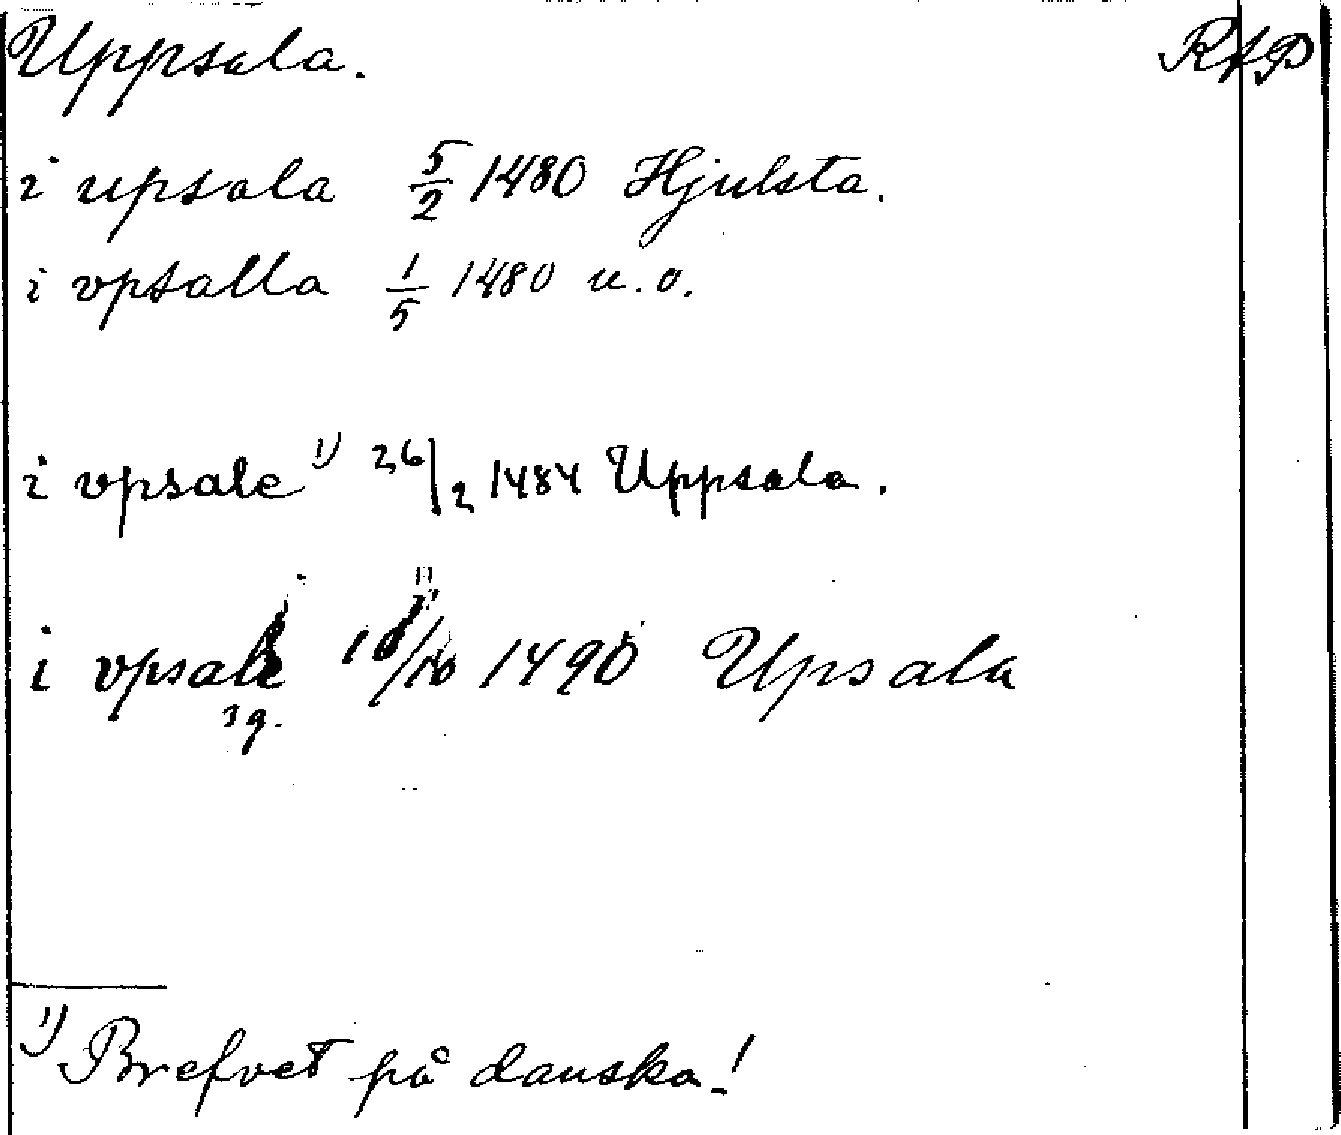 Uppsala. RAP
i upsala 5/2 1480 Hjulsta.
i vpsalla 1/5 1480 u.o.
i vpsale 1) 26/2 1484 Uppsala.
i vpsale /10 1490 Upsala
1) Brefvet på danska!